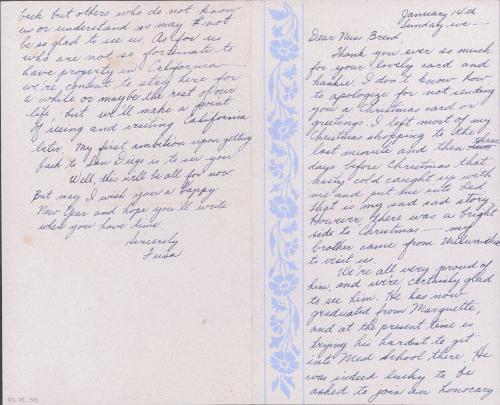 January 14th
Sunday eve —
Dear Miss Breed,
Thank you ever so much
for your lovely card and
hankie. I don't know how
to apologize for not sending
you a Christmas card or
greetings. I left most of my
Christmas shopping to the
last minute and then three
days before Christmas that
nasty cold caught up with
me and put me into bed
that is my sad sad story.
However there was a bright
side to Christmas — my
brother came from Milwaukee
to visit us.
We're all very proud of
him, and we're certainly glad
to see him. He has now
graduated from Marquette,
and at the present time is
trying his hardest to get
into Med School there. He
was indeed lucky to be
asked to join an honorary
back but others who do not know
us or understand us may not
be so glad to see us. As for us
who are not so fortunate to
have property in California —
we're content to stay here for
a while or maybe the rest of our
life, but we'll make a point
of seeing and visiting California
later. My first ambition upon getting
back to San Diego is to see you.
Well, this will be all for now
But may I wish you a happy
New Year and hope you'll write
when you have time.
Sincerely